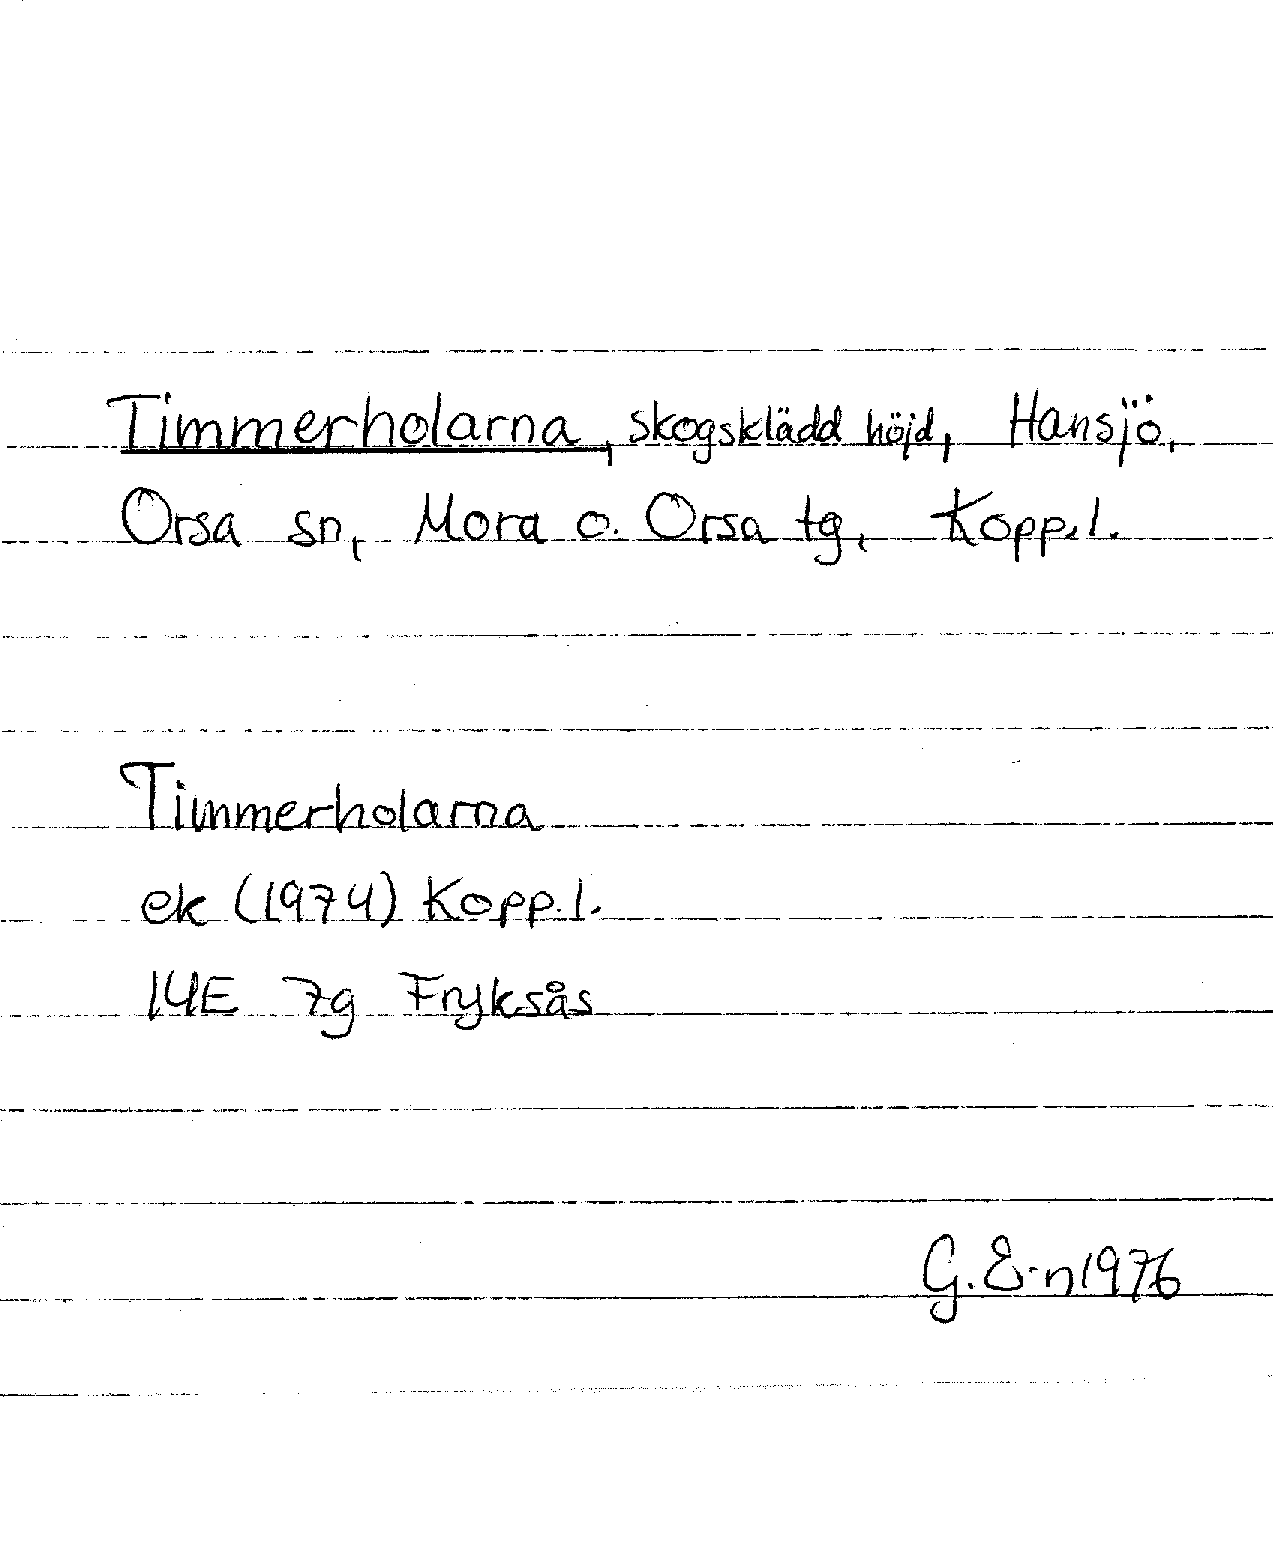 Timmerholarna, skogsklädd höjd, Hansjö,
Orsa sn, Mora o. Orsa tg, Kopp.l.
Timmerholarna
ek (1974) Kopp.l.
14E 7g Fryksås
G. E-n 1976